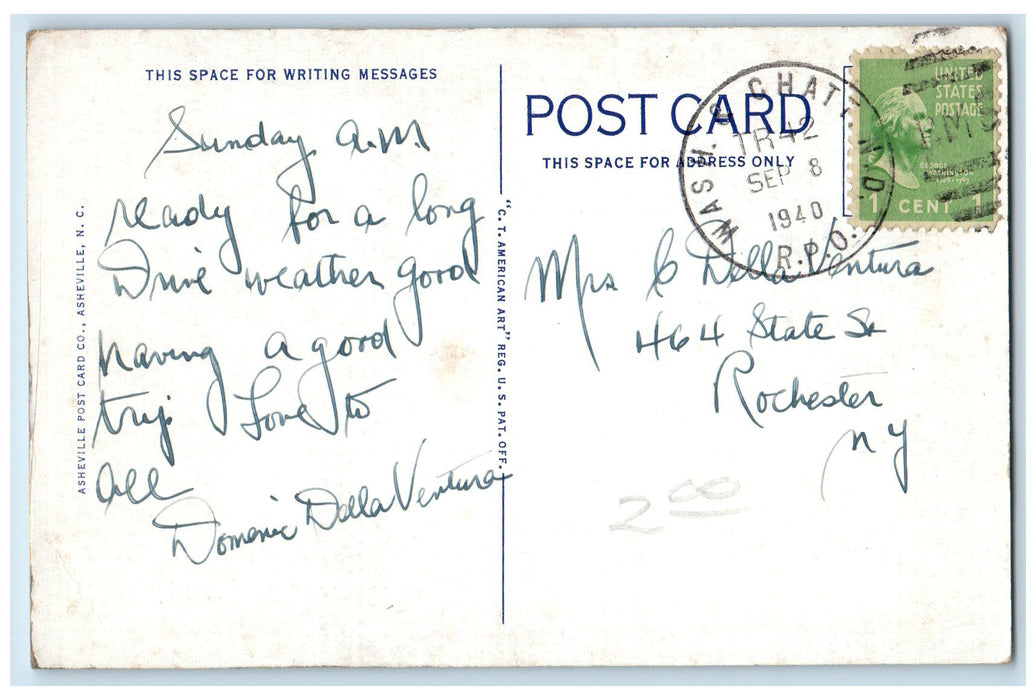 THIS SPACE FOR WRITING MESSAGES
Sunday A.M.
ready for a long
Drive weather good
having a good
trip Love to
all
Domenic Della Ventura
ASHEVILLE POST CARD CO., ASHEVILLE, N. C.
"C. T. AMERICAN ART" REG. U. S. PAT. OFF.
POST CARD
THIS SPACE FOR ADDRESS ONLY
WASH. & CHAT.
TR 42
SEP 8
1940
R.P.O.
UNITED
STATES
POSTAGE
R.M.S
GEORGE
WASHINGTON
1 CENT 1
Mrs C Della Ventura
464 State St
Rochester
NY
2 00